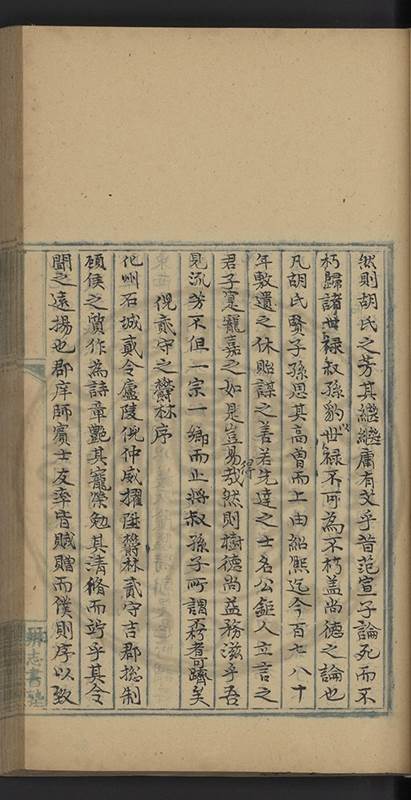 然則胡氏之芳其繼繼庸有艾乎昔范宣子論死而不
朽歸諸世祿叔孫豹以世祿不可為不朽蓋尚德之論也
凡胡氏賢子孫思其高曾而上由紹熙迄今百七八十
年敷遺之休貽謀之善若先達之士名公鉅人立言之
君子寔寵嘉之如是豈易得哉然則樹德尚益務滋乎吾
見流芳不但一宗一鄉而止將叔孫子所謂不朽者可躋矣
倪貳守之欝林序
化州石城貳令廬陵倪仲威擢陞欝林貳守吉郡捴制
碩侯之賔作為詩章艷其寵榮勉其清脩而竚乎其令
聞之遠揚也郡庠師賓士友率皆賦贈而僕則序以致